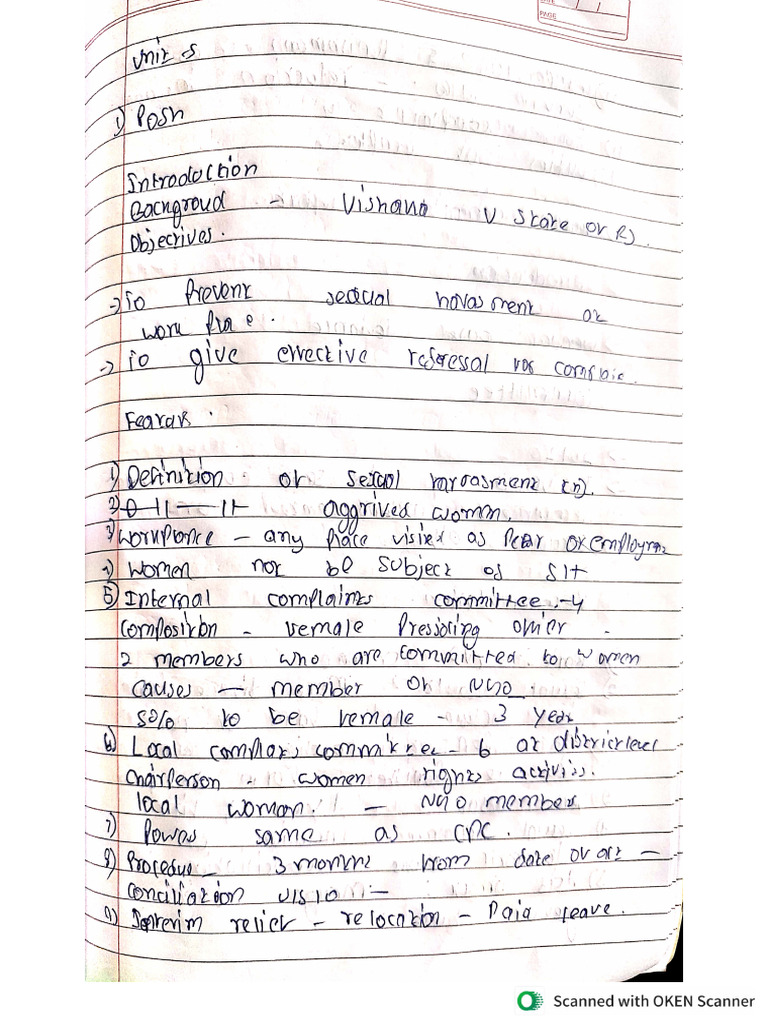 DATE / /
PAGE
Unit 5
1) Posh
Introduction
Backgroud - Vishaka V State of RJ.
Objectives.
-> To Prevent sexual harasment at
work place.
-> To give effective redressal for complain.
Featurs.
1) Definition of sexual harrasment (n).
2) aggrived womn.
3) Workplance - any place visited as Per of employme
-) Women not be subject of SH
5) Internal complaints committee :- 4
composition - female Pressiding officer -
2 members who are committed to women
causes - member of NGO
50% to be female - 3 year
6) Local complats committee - 6 at district level
Chairperson - women rights activiss.
local woman. - NGO member
7) Powes same as CPC.
8) Procedue - 3 months from date of act -
Conciliation u/s 10 -
9) Interim relief - relocation - Paid leave.
Scanned with OKEN Scanner